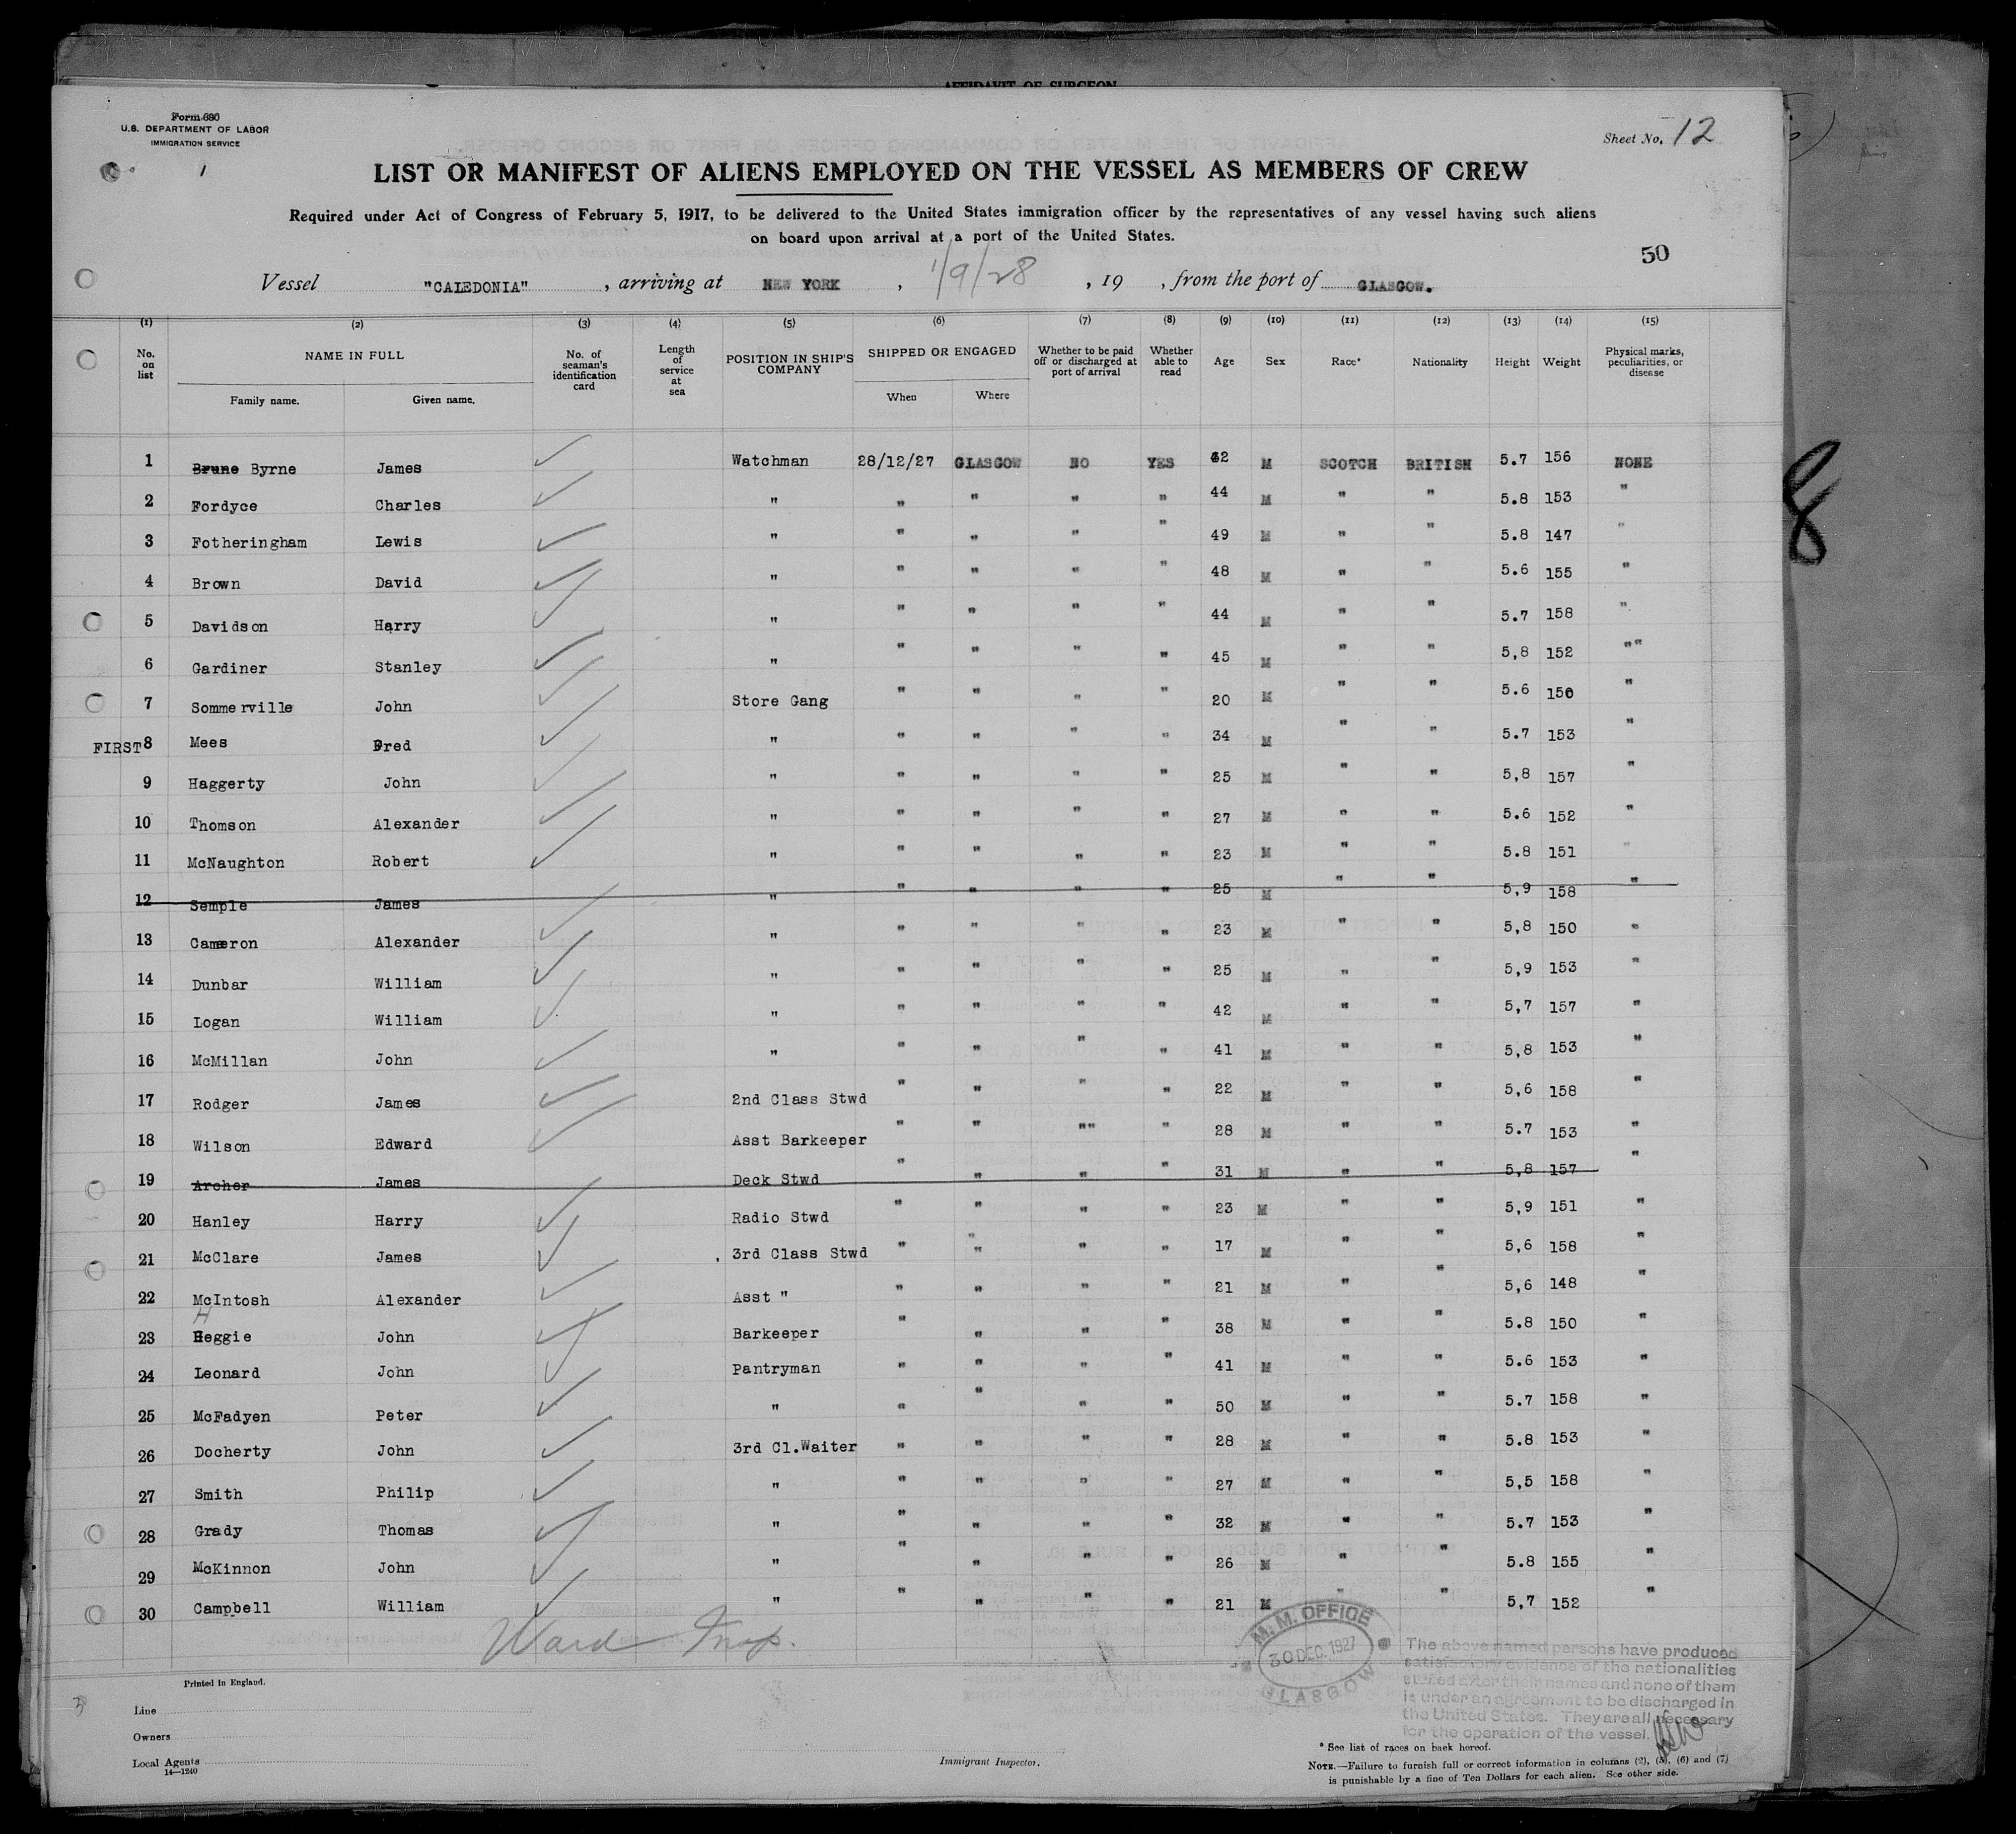 AFFIDAVIT OF SURGEON
Form 680
U.S. DEPARTMENT OF LABOR
IMMIGRATION SERVICE
1
Sheet No. 12
LIST OR MANIFEST OF ALIENS EMPLOYED ON THE VESSEL AS MEMBERS OF CREW
Required under Act of Congress of February 5, 1917, to be delivered to the United States immigration officer by the representatives of any vessel having such aliens
on board upon arrival at a port of the United States.
50
Vessel "CALEDONIA" , arriving at NEW YORK , 1/9/28 , 19 , from the port of GLASGOW.
(1) (2) (3) (4) (5) (6) (7) (8) (9) (10) (11) (12) (13) (14) (15)
No. on list NAME IN FULL Family name. Given name. No. of seaman's identification card Length of service at sea POSITION IN SHIP'S COMPANY SHIPPED OR ENGAGED When Where Whether to be paid off or discharged at port of arrival Whether able to read Age Sex Race* Nationality Height Weight Physical marks, peculiarities, or disease
1 Brune Byrne James Watchman 28/12/27 GLASGOW NO YES 42 M SCOTCH BRITISH 5.7 156 NONE
2 Fordyce Charles " " " " " 44 M " " 5.8 153 "
3 Fotheringham Lewis " " " " " 49 M " " 5.8 147 "
4 Brown David " " " " " 48 M " " 5.6 155 "
5 Davidson Harry " " " " " 44 M " " 5.7 158 "
6 Gardiner Stanley " " " " " 45 M " " 5,8 152 ""
7 Sommerville John Store Gang " " " " 20 M " " 5.6 150 "
FIRST 8 Mees Fred " " " " " 34 M " " 5.7 153 "
9 Haggerty John " " " " " 25 M " " 5,8 157 "
10 Thomson Alexander " " " " " 27 M " " 5.6 152 "
11 McNaughton Robert " " " " " 23 M " " 5.8 151 "
12 Semple James " " " " " 25 M " " 5,9 158 "
13 Cameron Alexander " " " " " 23 M " " 5,8 150 "
14 Dunbar William " " " " " 25 M " " 5,9 153 "
15 Logan William " " " " " 42 M " " 5,7 157 "
16 McMillan John " " " " " 41 M " " 5,8 153 "
17 Rodger James 2nd Class Stwd " " " " 22 M " " 5,6 158 "
18 Wilson Edward Asst Barkeeper " " "" " 28 M " " 5.7 153 "
19 Archer James Deck Stwd " " " " 31 M " " 5,8 157 "
20 Hanley Harry Radio Stwd " " " " 23 M " " 5,9 151 "
21 McClare James 3rd Class Stwd " " " " 17 M " " 5,6 158 "
22 McIntosh Alexander Asst " " " " " 21 M " " 5,6 148 "
H
23 Heggie John Barkeeper " " " " 38 M " " 5.8 150 "
24 Leonard John Pantryman " " " " 41 M " " 5.6 153 "
25 McFadyen Peter " " " " " 50 M " " 5.7 158 "
26 Docherty John 3rd Cl.Waiter " " " " 28 M " " 5.8 153 "
27 Smith Philip " " " " " 27 M " " 5,5 158 "
28 Grady Thomas " " " " " 32 M " " 5.7 153 "
29 McKinnon John " " " " " 26 M " " 5.8 155 "
30 Campbell William " " " " " 21 M " " 5,7 152 "
8
Ward Insp.
M.M. OFFICE
30 DEC. 1927
GLASGOW
The above named persons have produced
satisfactory evidence of the nationalities
stated after their names and none of them
is under an agreement to be discharged in
the United States. They are all necessary
for the operation of the vessel.
Printed in England.
3
Line
Owners
Local Agents
14—1240
Immigrant Inspector.
* See list of races on back hereof.
NOTE.—Failure to furnish full or correct information in columns (2), (5), (6) and (7)
is punishable by a fine of Ten Dollars for each alien. See other side.